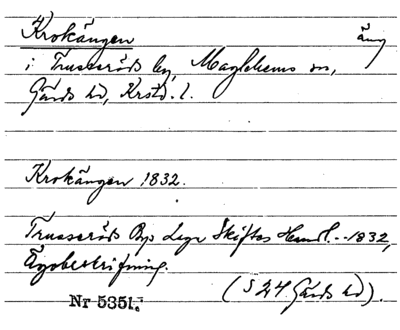 Krokängen äng
i Trusseröds by, Maglehems sn,
Gärds hd, Krstd. l.
Krokängen 1832.
Trusseröds Bys Laga Skiftes Handl. 1832,
Ägobeskrifning.
(S 24 Gärds hd).
Nr 5351.